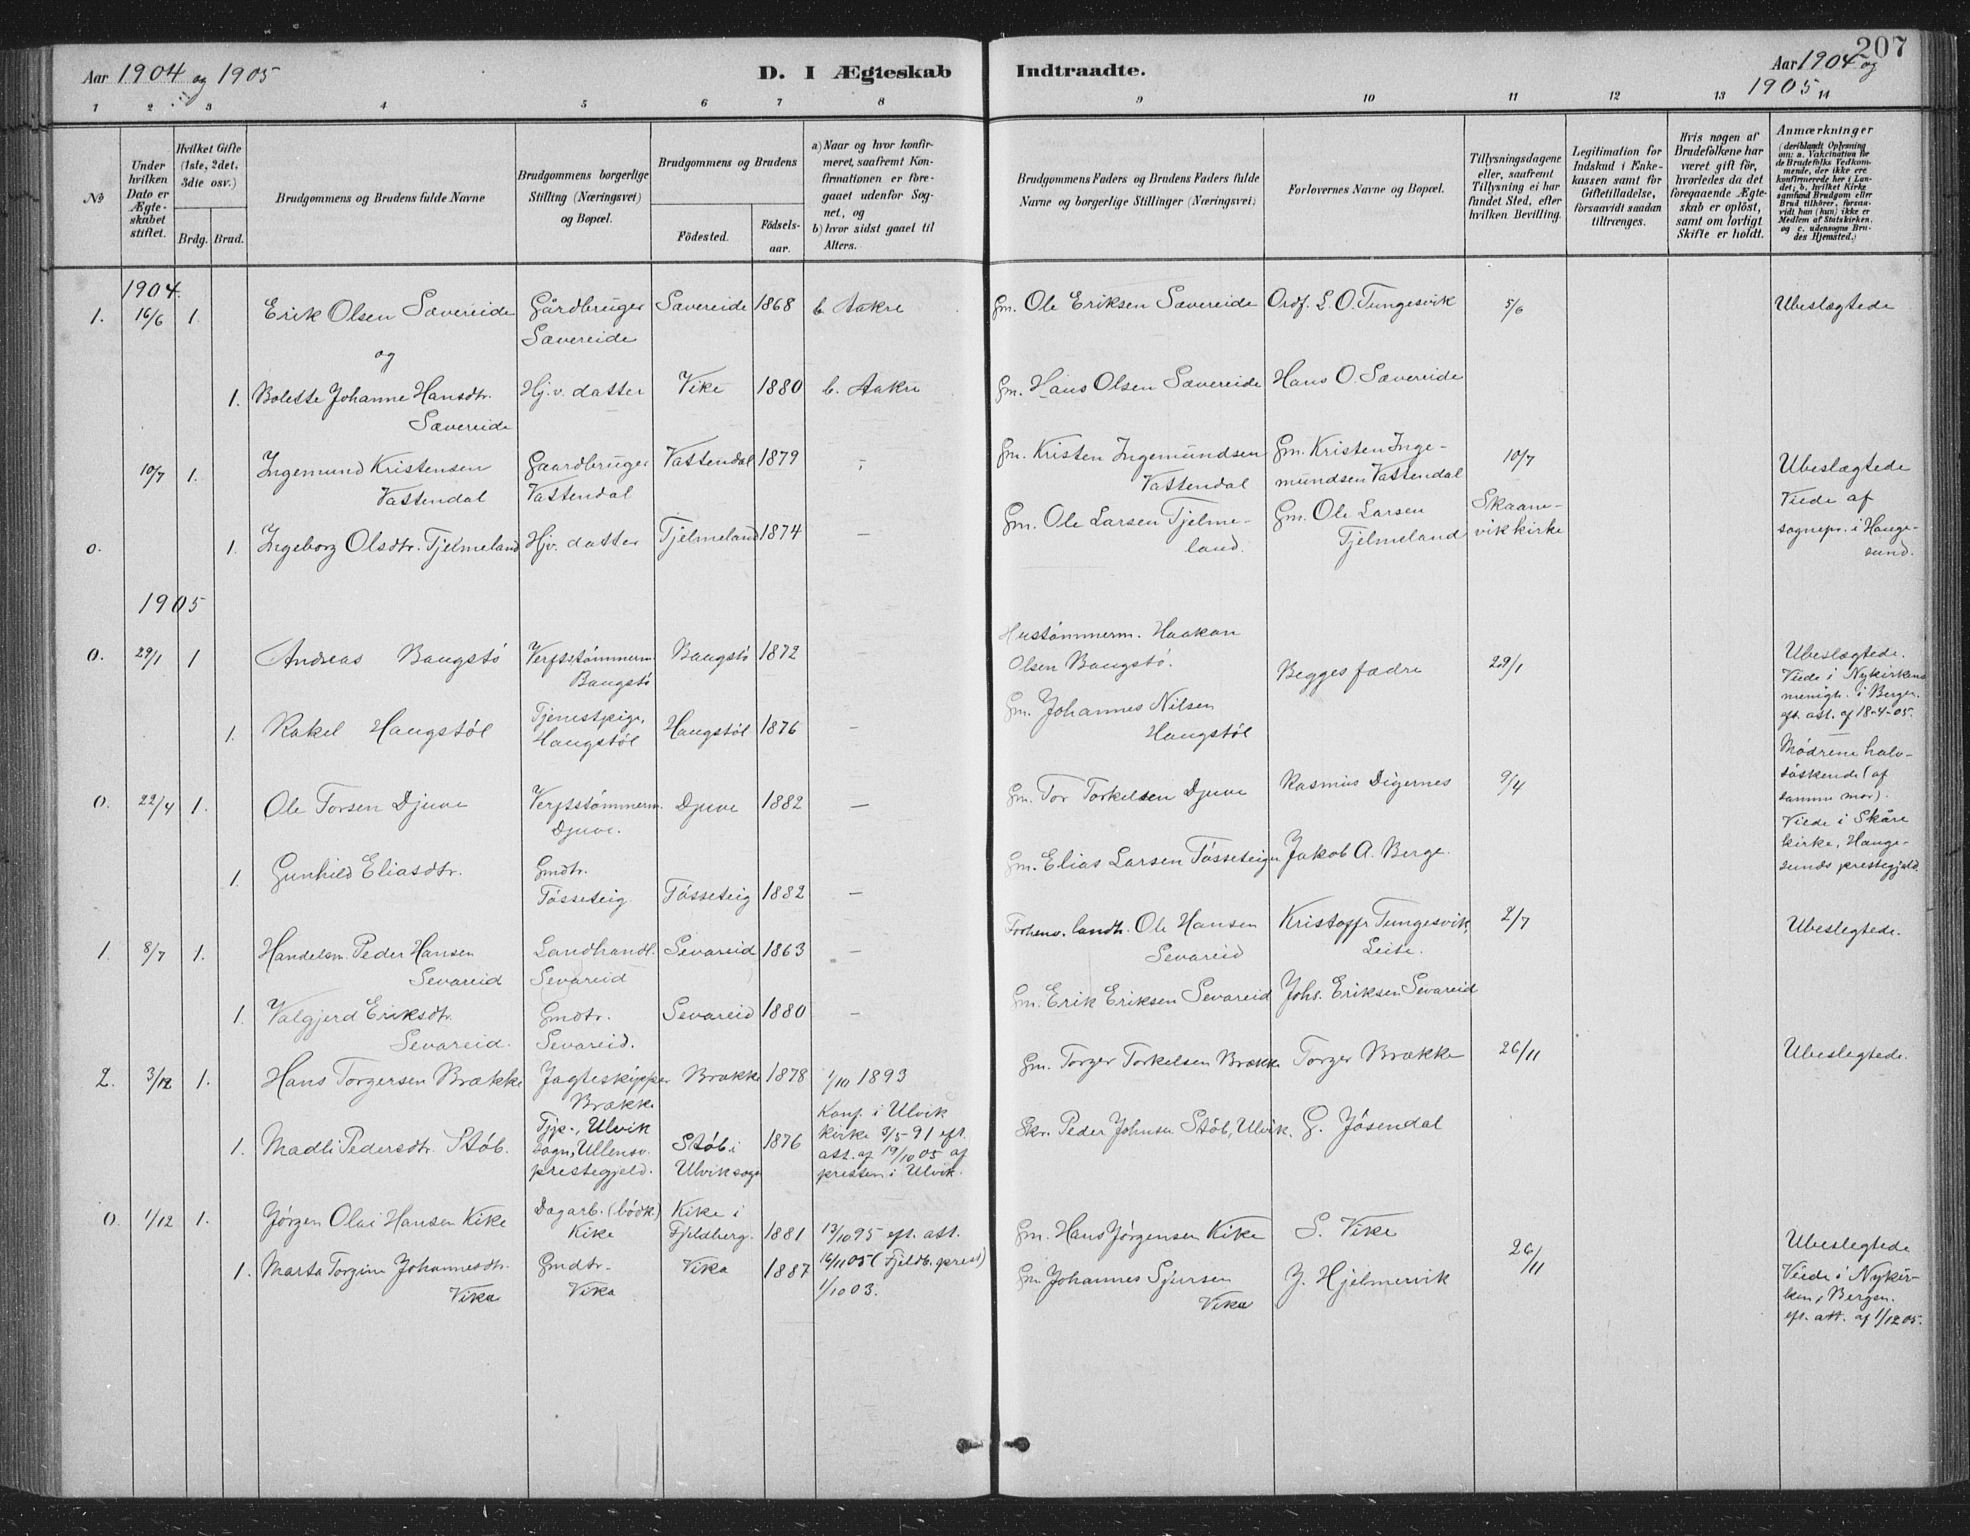 207
Aar 1904 og 1905
D. I Ægteskab Indtraadte.
Aar 1904 og
1905
1 2 3 4 5 6 7 8 9 10 11 12 13 14
No
Under hvilken Dato er Ægteskabet stiftet.
Hvilket Gifte (1ste, 2det, 3die osv.)
Brdg. Brud.
Brudgommens og Brudens fulde Navne
Brudgommens borgerlige Stilling (Næringsvei) og Bopæl.
Brudgommens og Brudens
Födested.
Födselsaar.
a) Naar og hvor konfirmeret, saafremt Konfirmationen er foregaaet udenfor Sognet, og
b) hvor sidst gaaet til Alters.
Brudgommens Faders og Brudens Faders fulde Navne og borgerlige Stillinger (Næringsvei)
Forlovernes Navne og Bopæl.
Tillysningsdagene eller, saafremt Tillysning ei har fundet Sted, efter hvilken Bevilling.
Legitimation for Indskud i Enkekassen samt for Giftetilladelse, forsaavidt saadan tiltrænges.
Hvis nogen af Brudefolkene har været gift för, hvorledes da det foregaaende Ægteskab er oplöst, samt om lovligt Skifte er holdt.
Anmærkninger
(deriblandt Oplysning om: a. Vakcination for de Brudefolks Vedkommende, der ikke ere konfirmerede her i Landet; b. hvilket Kirkesamfund Brudgom eller Brud tilhörer, forsaavidt han (hun) ikke er Medlem af Statskirken, og c. udensogns Brudes Hjemsted.)
1904.
1. 16/6 1. Erik Olsen Sævereide Gårdbruger Sævereide 1868 b. Aakre Gm. Ole Eriksen Sævereide Ordf. L. O. Tungesvik 5/6 Ubeslægtede
Sævereide
og
1. Bolette Johanne Hansdtr. Hj.v. datter Vike 1880 b. Aakre Gm. Hans Olsen Sævereide Hans O. Sævereide
Sævereide
10/7 1. Ingemund Kristensen Gaardbruger Vattendal 1879 Gm. Kristen Ingemundsen Gm. Kristen Inge- 10/7 Ubeslægtede
Vattendal Vattendal Vattendal mundsen Vattendal Viede af
o. 1. Ingeborg Olsdtr. Tjelmeland Hjv. datter Tjelmeland 1874 — Gm. Ole Larsen Tjelme- Gm. Ole Larsen Skaane- sognepr. i Hauge-
land. Tjelmeland vik kirke sund.
1905
o. 29/1 1 Andreas Baugstø Verftstømmerm. Baugstø 1872 — Hustømmerm. Haakon
Baugstø Olsen Baugstø. Begges fædre 29/1 Ubeslægtede.
Viede i Nykirkens
menigh. i Bergen.
eft. att. af 18-4-05.
1. Rakel Haugstøl Tjenestpige, Haugstøl 1876 — Gm. Johannes Nilsen
Haugstøl Haugstøl
o. 22/4 1. Ole Torsen Djuve Verftstømmerm. Djuve 1882 — Gm. Tor Torkelsen Djuve Rasmus Digernes 9/4 Mødrene halv-
Djuve. søskende (af
samme mor).
Viede i Skåre
kirke, Hauge-
sunds prestegjeld.
1. Gunhild Eliasdtr. Gmdtr. Gm. Elias Larsen Tösseteigen Jakob A. Berge.
Tösseteig. Tösseteig 1882 —
1. 8/7 1. Handelsm. Peder Hansen Landhandl. Sevareid 1863 — Forhenv. landh. Ole Hansen Kristoffr Tungesvik, 2/7 Ubeslegtede.
Sevareid Sevareid Sevareid Leite.
1. Valgjerd Eriksdtr. Gmdtr. Sevareid 1880 — Gm. Erik Eriksen Sevareid Johs. Eriksen Sevareid
Sevareid. Sevareid.
2. 3/12 1. Hans Torgersen Brække Jagteskipper Brække 1878 1/10 1893 Gm. Torger Torkelsen Brække Torger Brække 26/11 Ubeslegtede.
Brække
1. Madli Pedersdtr. Støb. Tjp., Ulvik Støb i 1876 Konf. i Ulvik Skr. Peder Johnsen Støb, Ulvik. G. Jøsendal
sogn, Ullensv. Ulvik sogn kirke 3/5-91 eft.
prestegjeld. att. af 19/10 05 af
presten i Ulvik.
o. 1/12 1. Jørgen Olai Hansen Kike Dagarb. (bødk.) Kike i Fjeldberg. 1881 13/10 95 eft. att. Gm. Hans Jørgensen Kike S. Vike
Kike 16/11 05 (Fjeldb. prest)
1. Marta Torgine Johannesdtr. Gmdtr. Vika 1887 1/10 03. Gm. Johannes Sjursen J. Hjelmervik 26/11 Ubeslegtede
Vika Vika Vika Viede i Nykir-
ken, Bergen.
eft. att. af 1/12 05.